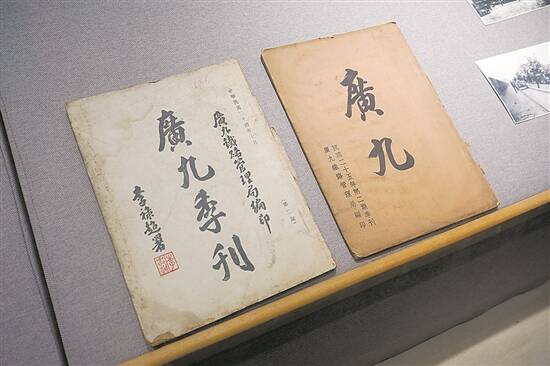 中華民國二十四年十月
廣九鐵路管理局編印
(第一期)
廣九季刊
李祿超署
廣九
民國二十五年第二期季刊
廣九鐵路管理局編印